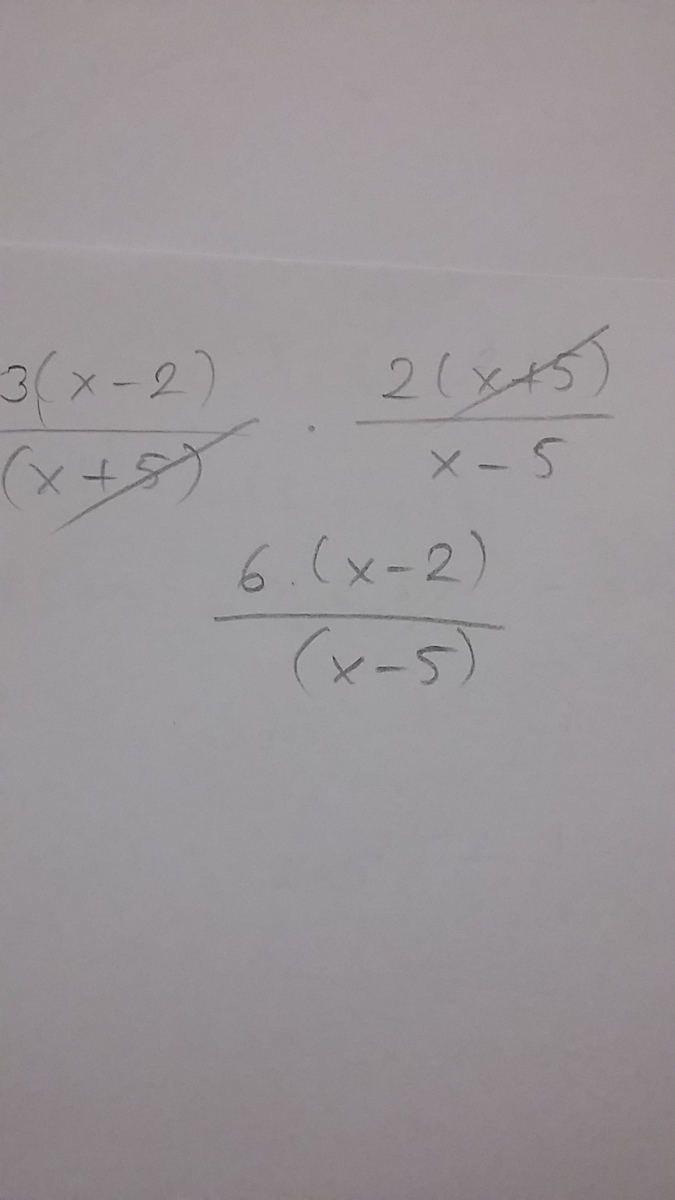 3(x-2) / (x+5) · 2(x+5) / x-5
6.(x-2) / (x-5)